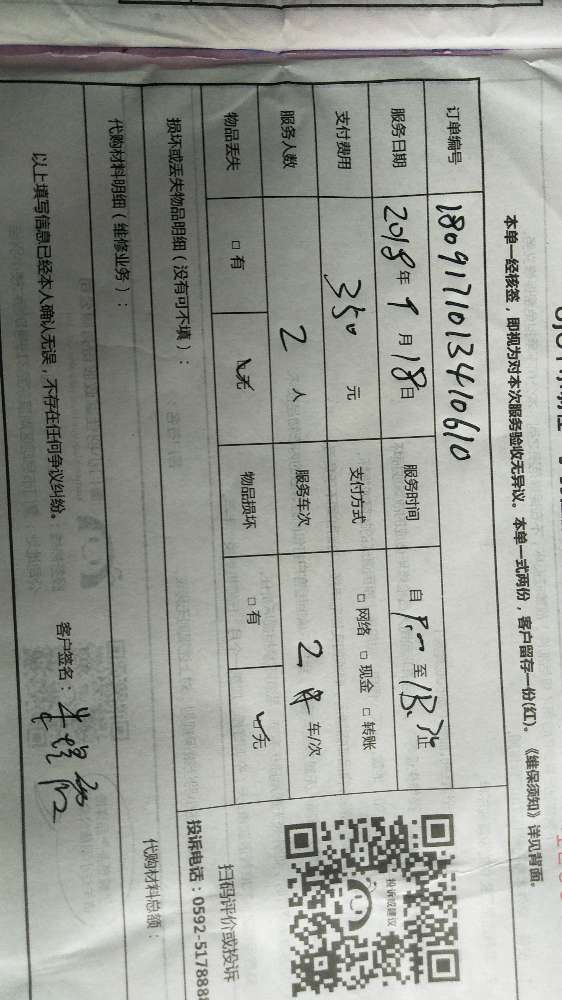 本单一经核签，即视为对本次服务验收无异议。本单一式两份，客户留存一份(红)。《维保须知》详见背面。
订单编号 180917101341061 0
服务日期 2018 年 9 月 18 日 服务时间 自 至 止
支付费用 350 元 支付方式 □ 网络 □ 现金 □ 转账
服务人数 2 人 服务车次 2 车/次
物品丢失 □ 有 □ 无 物品损坏 □ 有 □ 无
损坏或丢失物品明细（没有可不填）：
代购材料明细（维修业务）：
代购材料总额：
以上填写信息已经本人确认无误，不存在任何争议纠纷。
客户签名：
投诉或建议
扫码评价或投诉
投诉电话：0592-5178888